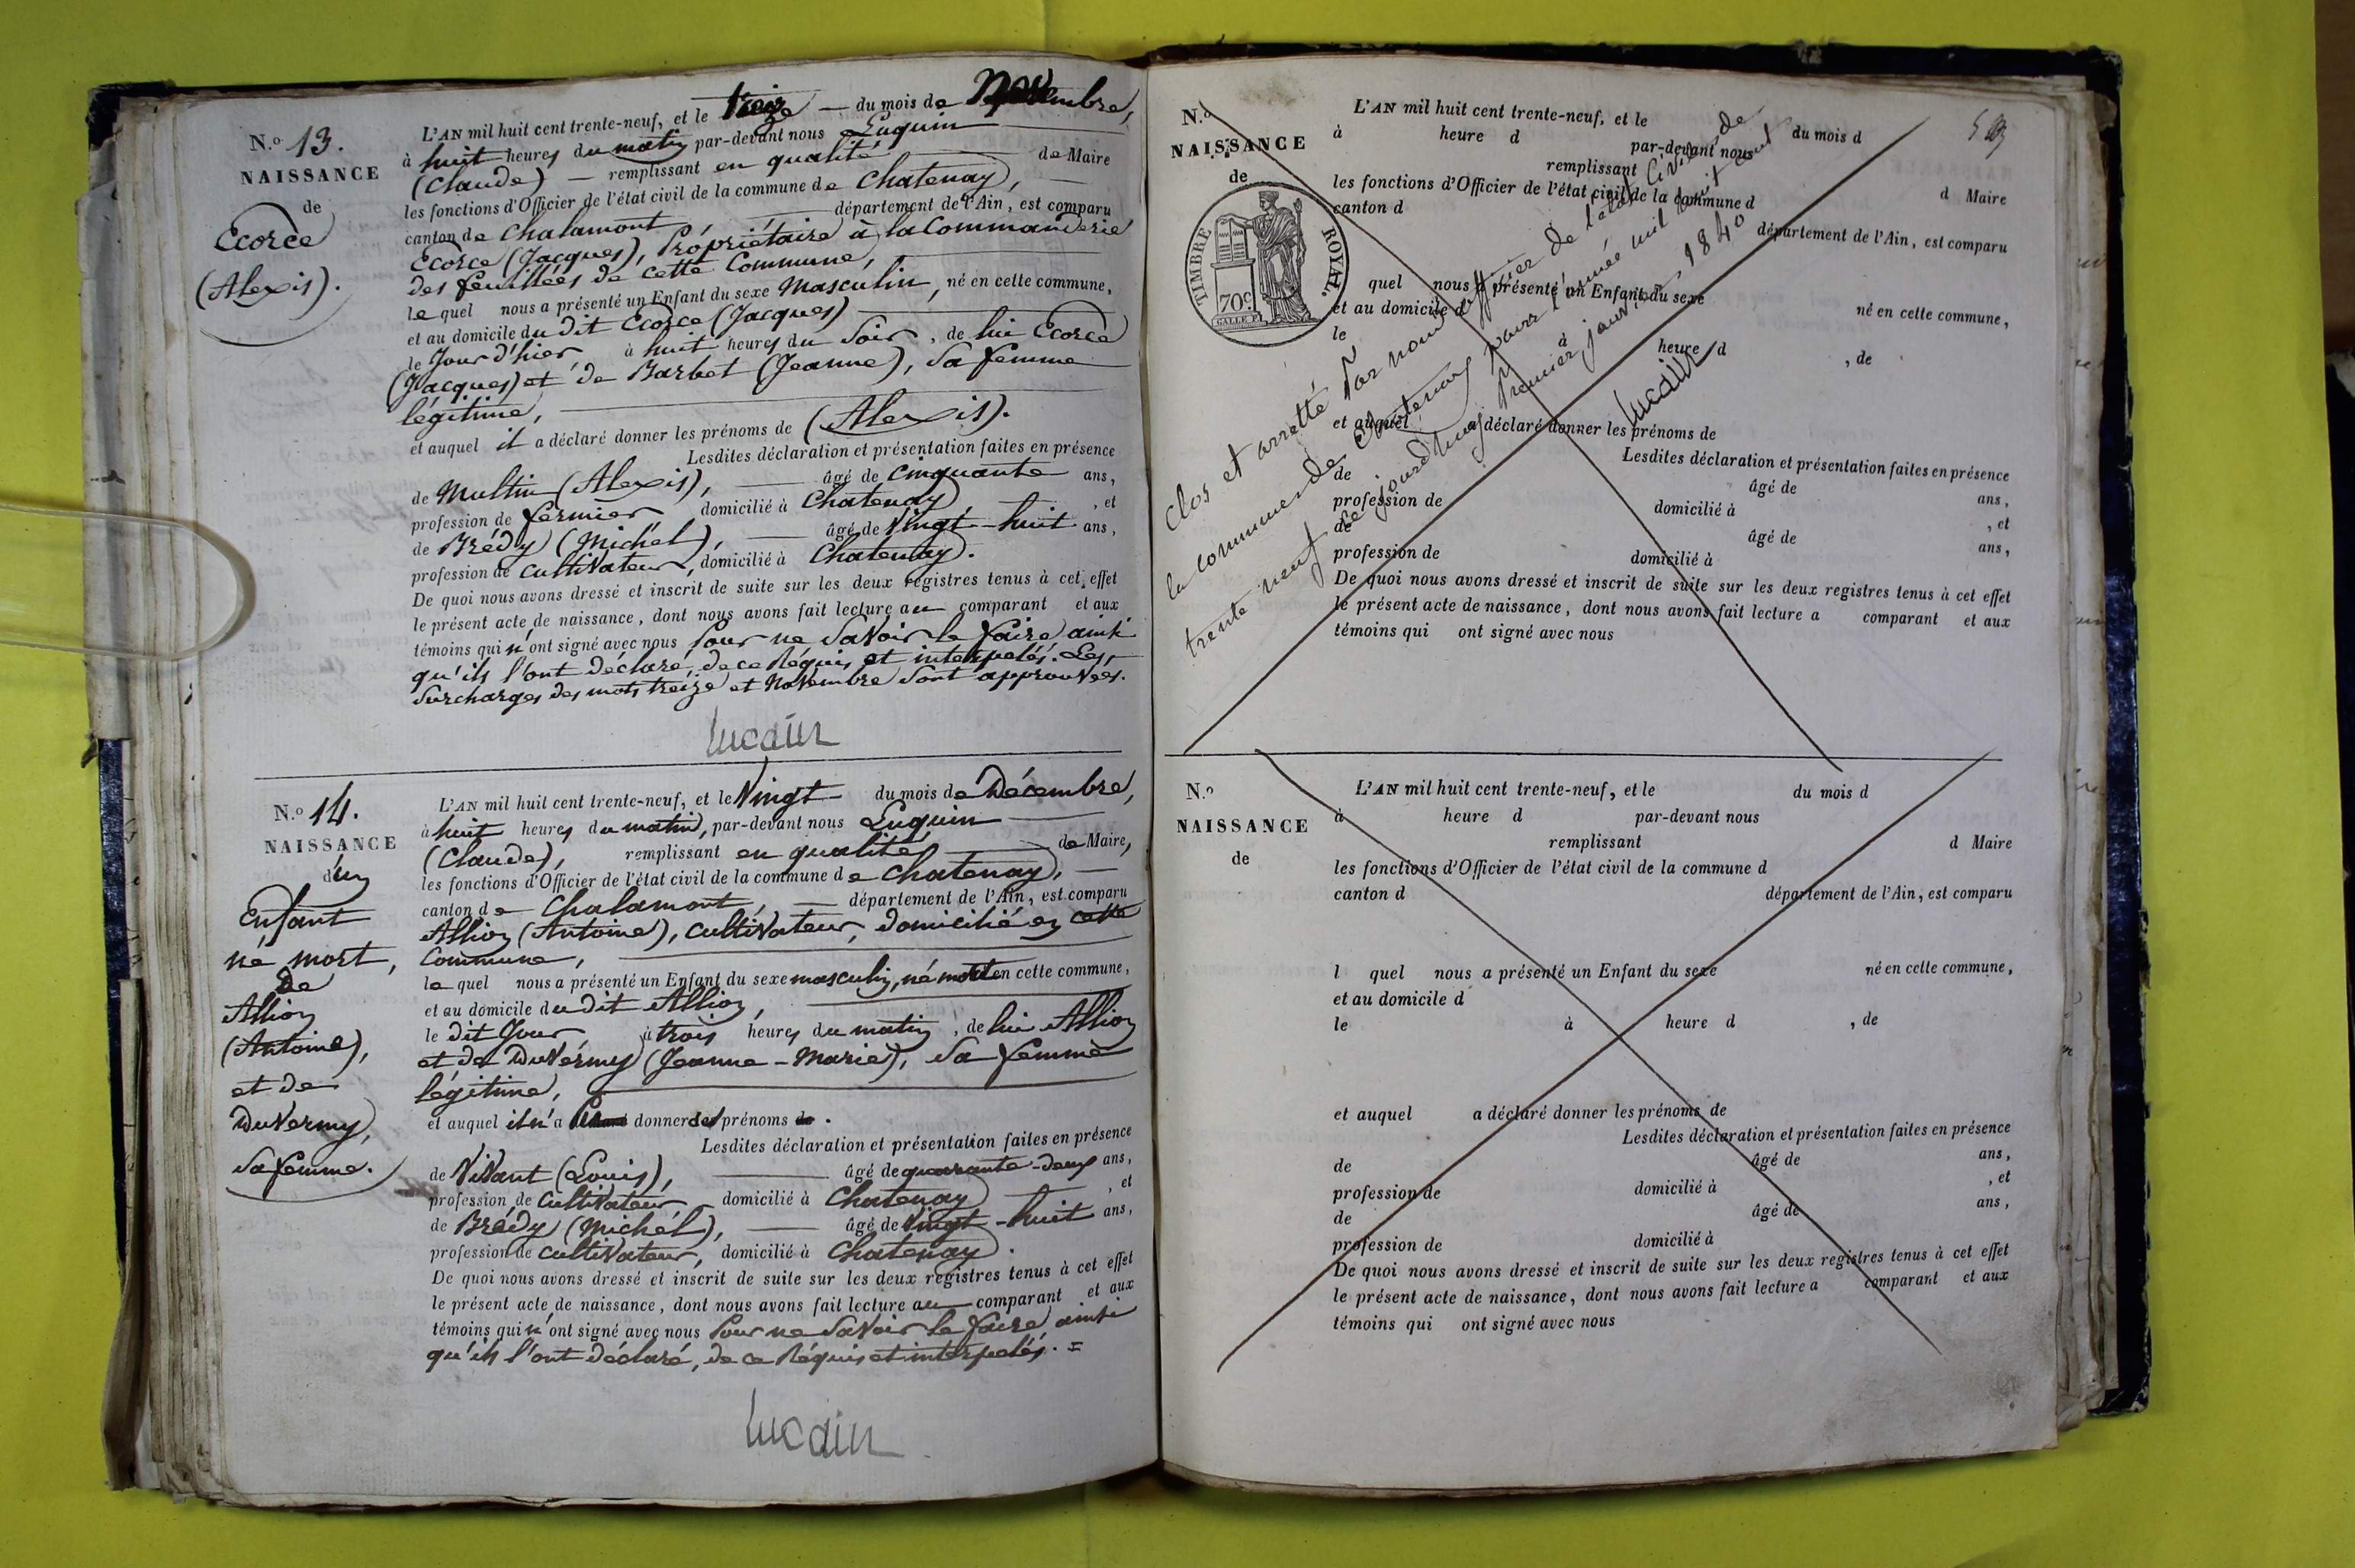 N.º 13.
NAISSANCE
de
Ecorce
(Alexis).
L'AN mil huit cent trente-neuf, et le treize du mois de Novembre,
à huit heures du matin par-devant nous Luquin
(Claude) remplissant en qualité de Maire
les fonctions d'Officier de l'état civil de la commune de Chatenay,
canton de Chalamont, département de l'Ain, est comparu
Ecorce (Jacques), Propriétaire à la Commanderie
des feuillées de cette Commune,
lequel nous a présenté un Enfant du sexe Masculin, né en cette commune,
et au domicile du dit Ecorce (Jacques)
le Jour d'hier à huit heures du Soir, de lui Ecorce
(Jacques) et de Barbet (Jeanne), Sa femme
légitime,
et auquel il a déclaré donner les prénoms de (Alexis).
Lesdites déclaration et présentation faites en présence
de Multin (Alexis), âgé de Cinquante ans,
profession de fermier domicilié à Chatenay, et
de Brédy (Michel), âgé de Vingt-huit ans,
profession de Cultivateur, domicilié à Chatenay.
De quoi nous avons dressé et inscrit de suite sur les deux registres tenus à cet effet
le présent acte de naissance, dont nous avons fait lecture au comparant et aux
témoins qui n'ont signé avec nous Pour ne Savoir le faire ainsi
qu'ils l'ont déclaré, de ce Réquis et interpelés. Les
Surcharges des mots treize et Novembre Sont approuvées.
lucain
N.º 14.
NAISSANCE
d'un
Enfant
né mort,
de
Allion
(Antoine),
et de
Duvermy,
Sa femme.
L'AN mil huit cent trente-neuf, et le Vingt du mois de Décembre,
à huit heures du matin, par-devant nous Luquin
(Claude), remplissant en qualité de Maire,
les fonctions d'Officier de l'état civil de la commune de Chatenay,
canton de Chalamont, département de l'Ain, est comparu
Allion (Antoine), Cultivateur, domicilié en cette
Commune,
lequel nous a présenté un Enfant du sexe masculin, né mort en cette commune,
et au domicile du dit Allion,
le dit Jour à trois heures du matin, de lui Allion
et de Duvermy (Jeanne-Marie), Sa femme
légitime,
et auquel il n'a donner des prénoms de.
Lesdites déclaration et présentation faites en présence
de Vivant (Louis), âgé de quarante-deux ans,
profession de Cultivateur domicilié à Chatenay, et
de Brédy (Michel), âgé de Vingt-huit ans,
profession de Cultivateur, domicilié à Chatenay.
De quoi nous avons dressé et inscrit de suite sur les deux registres tenus à cet effet
le présent acte de naissance, dont nous avons fait lecture au comparant et aux
témoins qui n'ont signé avec nous Pour ne Savoir le faire ainsi
qu'ils l'ont déclaré, de ce Réquis et interpelés. =
lucain
N.º
NAISSANCE
de
TIMBRE ROYAL.
70c
L'AN mil huit cent trente-neuf, et le du mois d
à heure d par-devant nous
remplissant d Maire
les fonctions d'Officier de l'état civil de la commune d
canton d département de l'Ain, est comparu
quel nous a présenté un Enfant du sexe né en cette commune,
et au domicile d
le à heure d , de
et auquel a déclaré donner les prénoms de
Lesdites déclaration et présentation faites en présence
de âgé de ans,
profession de domicilié à , et
de âgé de ans,
profession de domicilié à
De quoi nous avons dressé et inscrit de suite sur les deux registres tenus à cet effet
le présent acte de naissance, dont nous avons fait lecture a comparant et aux
témoins qui ont signé avec nous
Clos et arretté Par nous officier de l'état Civil de
la commune de Chatenay pour l'année mil huit cent
trente neuf ce jourd'huy premier janvier 1840
lucain
N.º
NAISSANCE
de
L'AN mil huit cent trente-neuf, et le du mois d
à heure d par-devant nous
remplissant d Maire
les fonctions d'Officier de l'état civil de la commune d
canton d département de l'Ain, est comparu
l quel nous a présenté un Enfant du sexe né en cette commune,
et au domicile d
le à heure d , de
et auquel a déclaré donner les prénoms de
Lesdites déclaration et présentation faites en présence
de âgé de ans,
profession de domicilié à , et
de âgé de ans,
profession de domicilié à
De quoi nous avons dressé et inscrit de suite sur les deux registres tenus à cet effet
le présent acte de naissance, dont nous avons fait lecture a comparant et aux
témoins qui ont signé avec nous